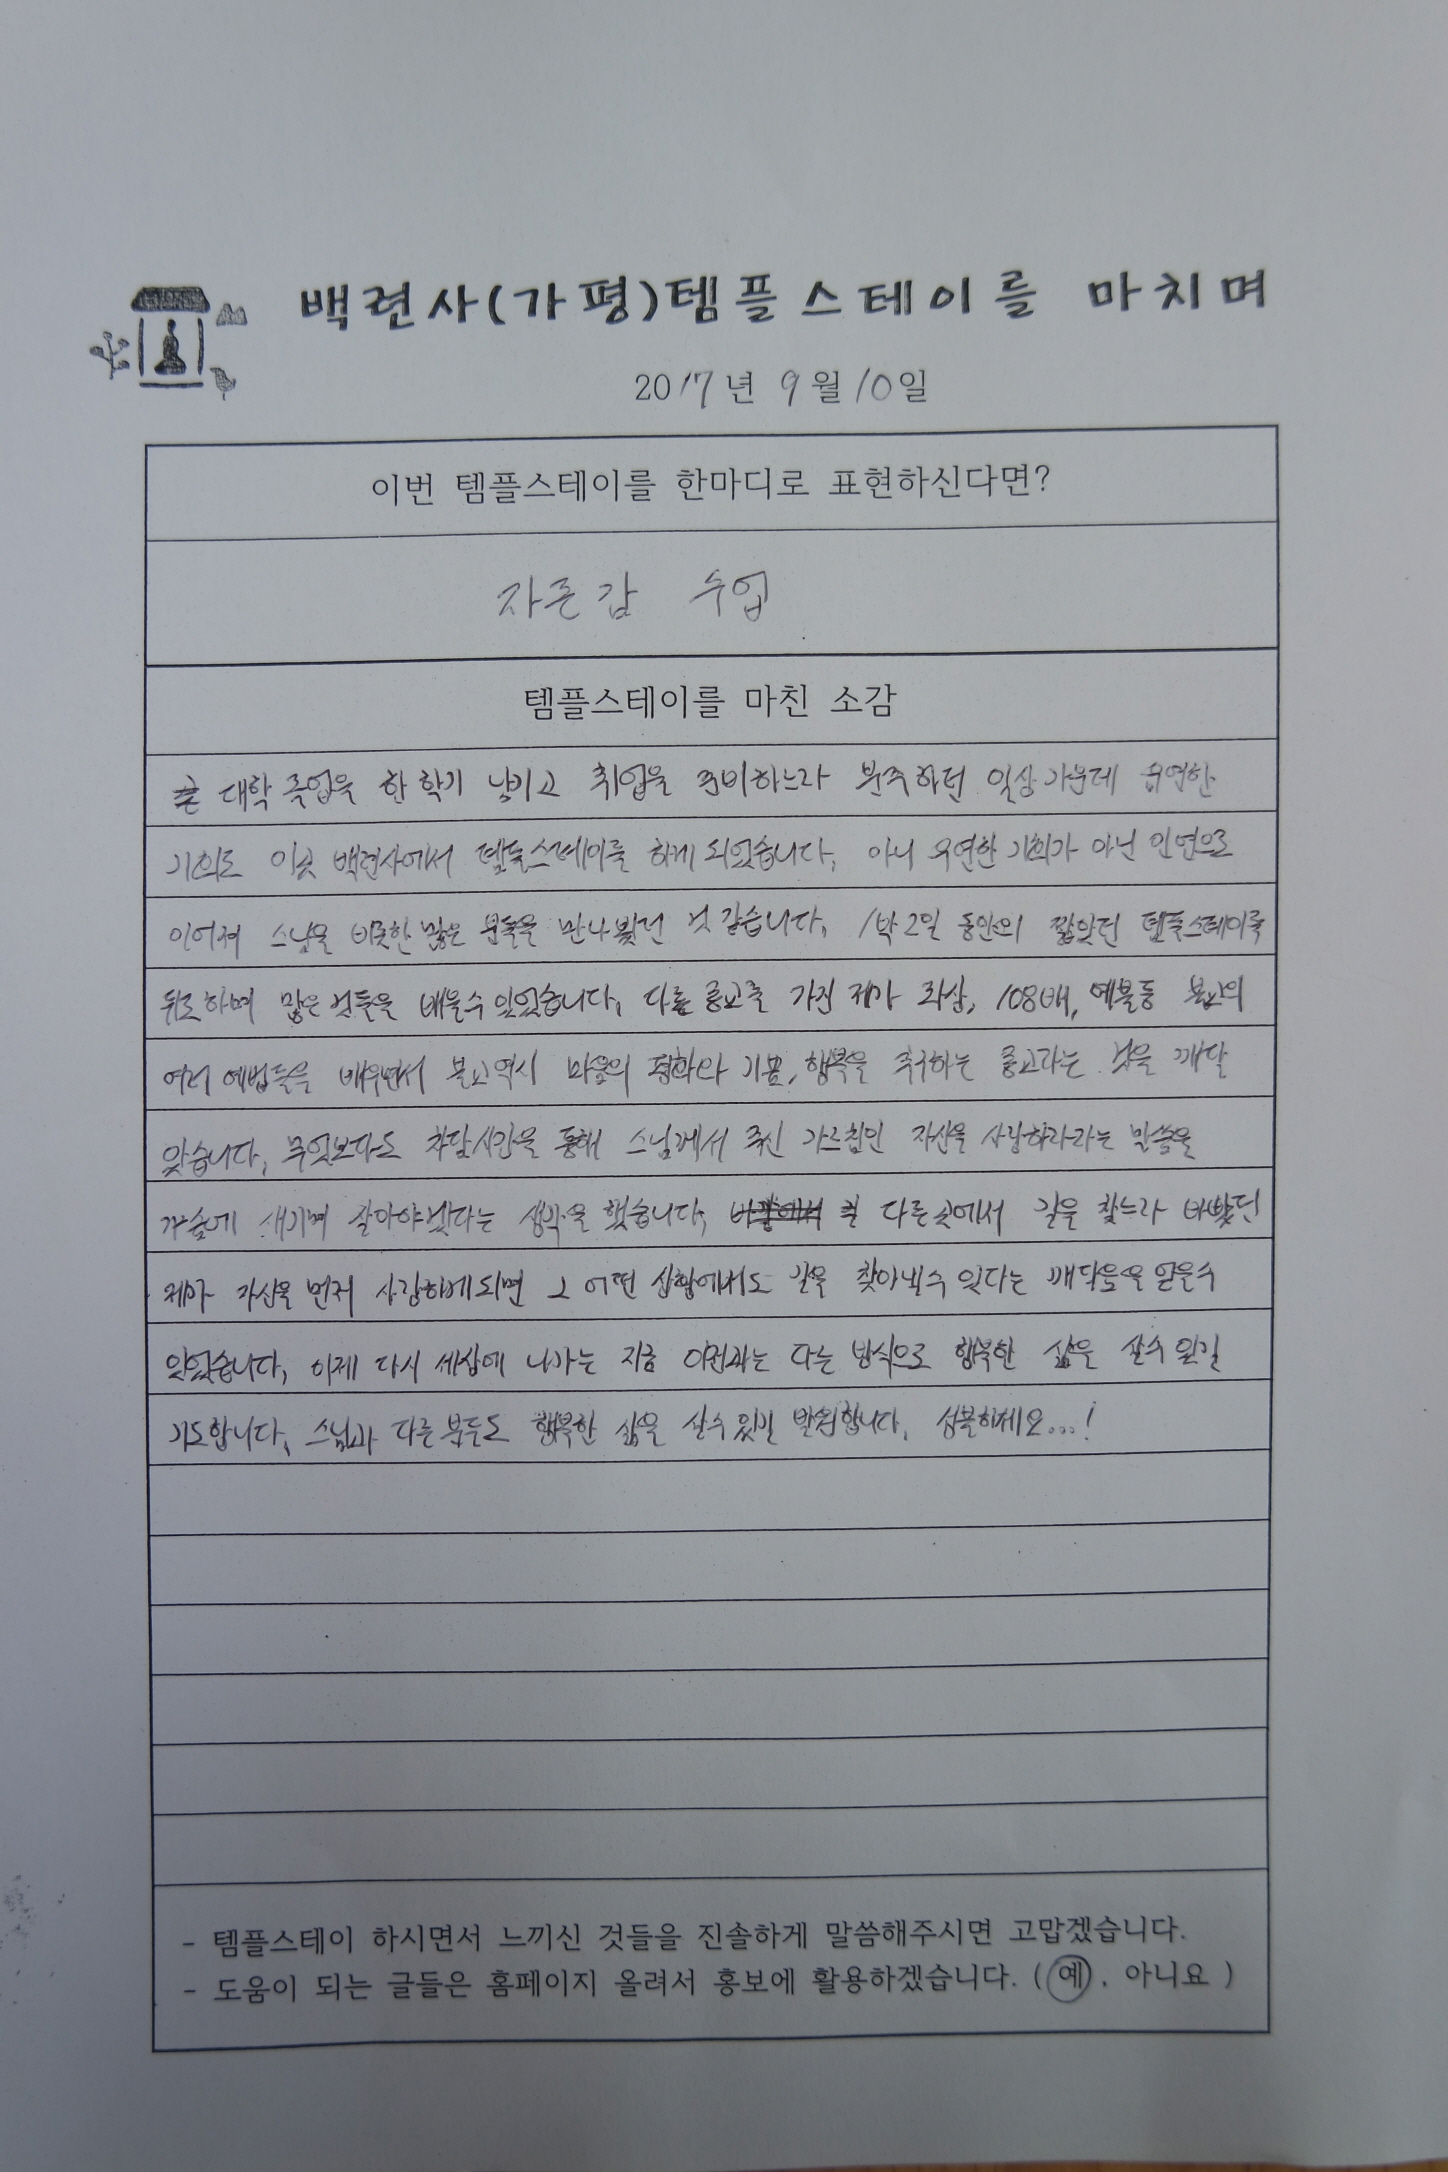 백련사(가평)템플스테이를 마치며
2017년 9월 10일
이번 템플스테이를 한마디로 표현하신다면?
자존감 수업
템플스테이를 마친 소감
대학 졸업을 한 학기 남기고 취업을 준비하느라 분주하던 일상 가운데 우연한
기회로 이곳 백련사에서 템플스테이를 하게 되었습니다. 아니 우연한 기회가 아닌 인연으로
이어져 스님을 비롯한 많은 분들을 만나뵀던 것 같습니다. 1박 2일 동안의 짧았던 템플스테이를
뒤로하며 많은 것들을 배울수 있었습니다. 다른 종교를 가진 제가 좌상, 108배, 예불등 불교의
여러 예법들을 배우면서 불교역시 마음의 평화와 기쁨, 행복을 추구하는 종교라는 것을 깨달
았습니다. 무엇보다도 차담시간을 통해 스님께서 주신 가르침인 자신을 사랑하라라는 말씀을
가슴에 새기며 살아야겠다는 생각을 했습니다. 다른곳에서 길을 찾느라 바빴던
제가 자신을 먼저 사랑하게되면 그 어떤 상황에서도 길을 찾아낼수 있다는 깨달음을 얻을수
있었습니다. 이제 다시 세상에 나가는 지금 이전과는 다른 방식으로 행복한 삶을 살수 있길
기도합니다. 스님과 다른 분들도 행복한 삶을 살수 있길 발원합니다. 성불하세요...!
- 템플스테이 하시면서 느끼신 것들을 진솔하게 말씀해주시면 고맙겠습니다.
- 도움이 되는 글들은 홈페이지 올려서 홍보에 활용하겠습니다. ( 예 . 아니요 )